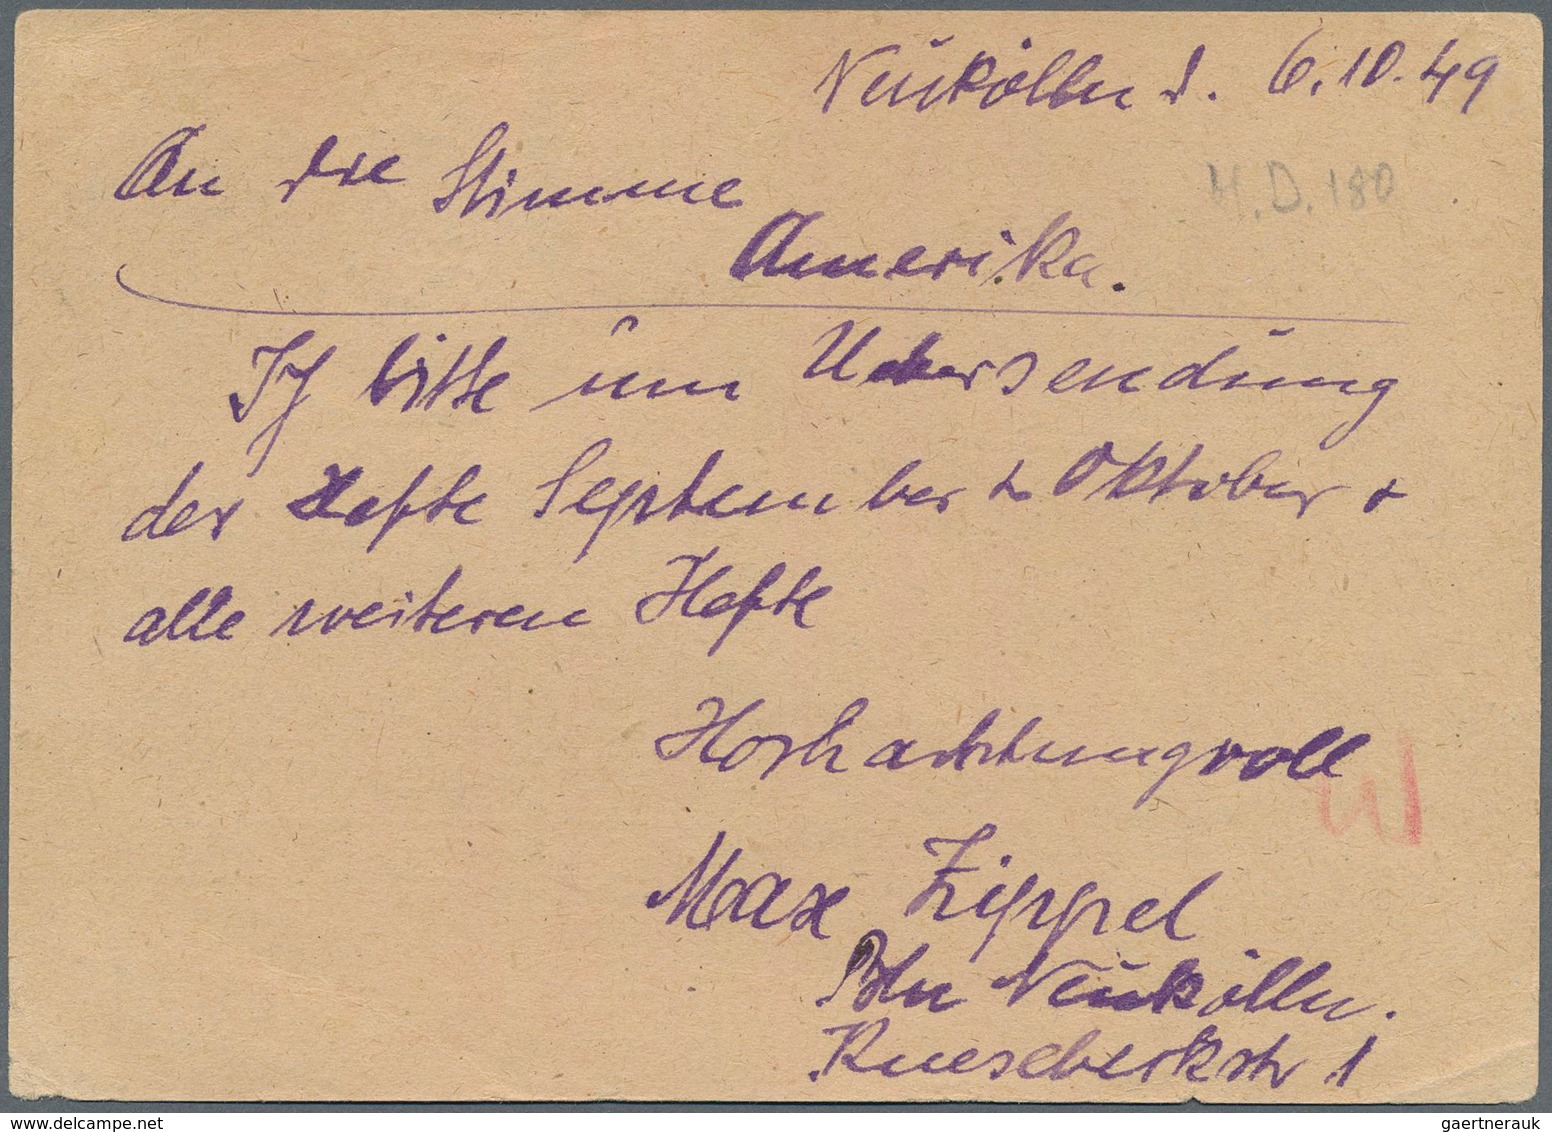 Neukölln d. 6.10.49
An die Stimme
H.D.180
Amerika.
Ich bitte um Uebersendung
der Hefte September u Oktober +
alle weiteren Hefte
Hochachtungvoll
Max Zippel
Bln Neukölln.
1
gaertnerauk @ delcampe.net